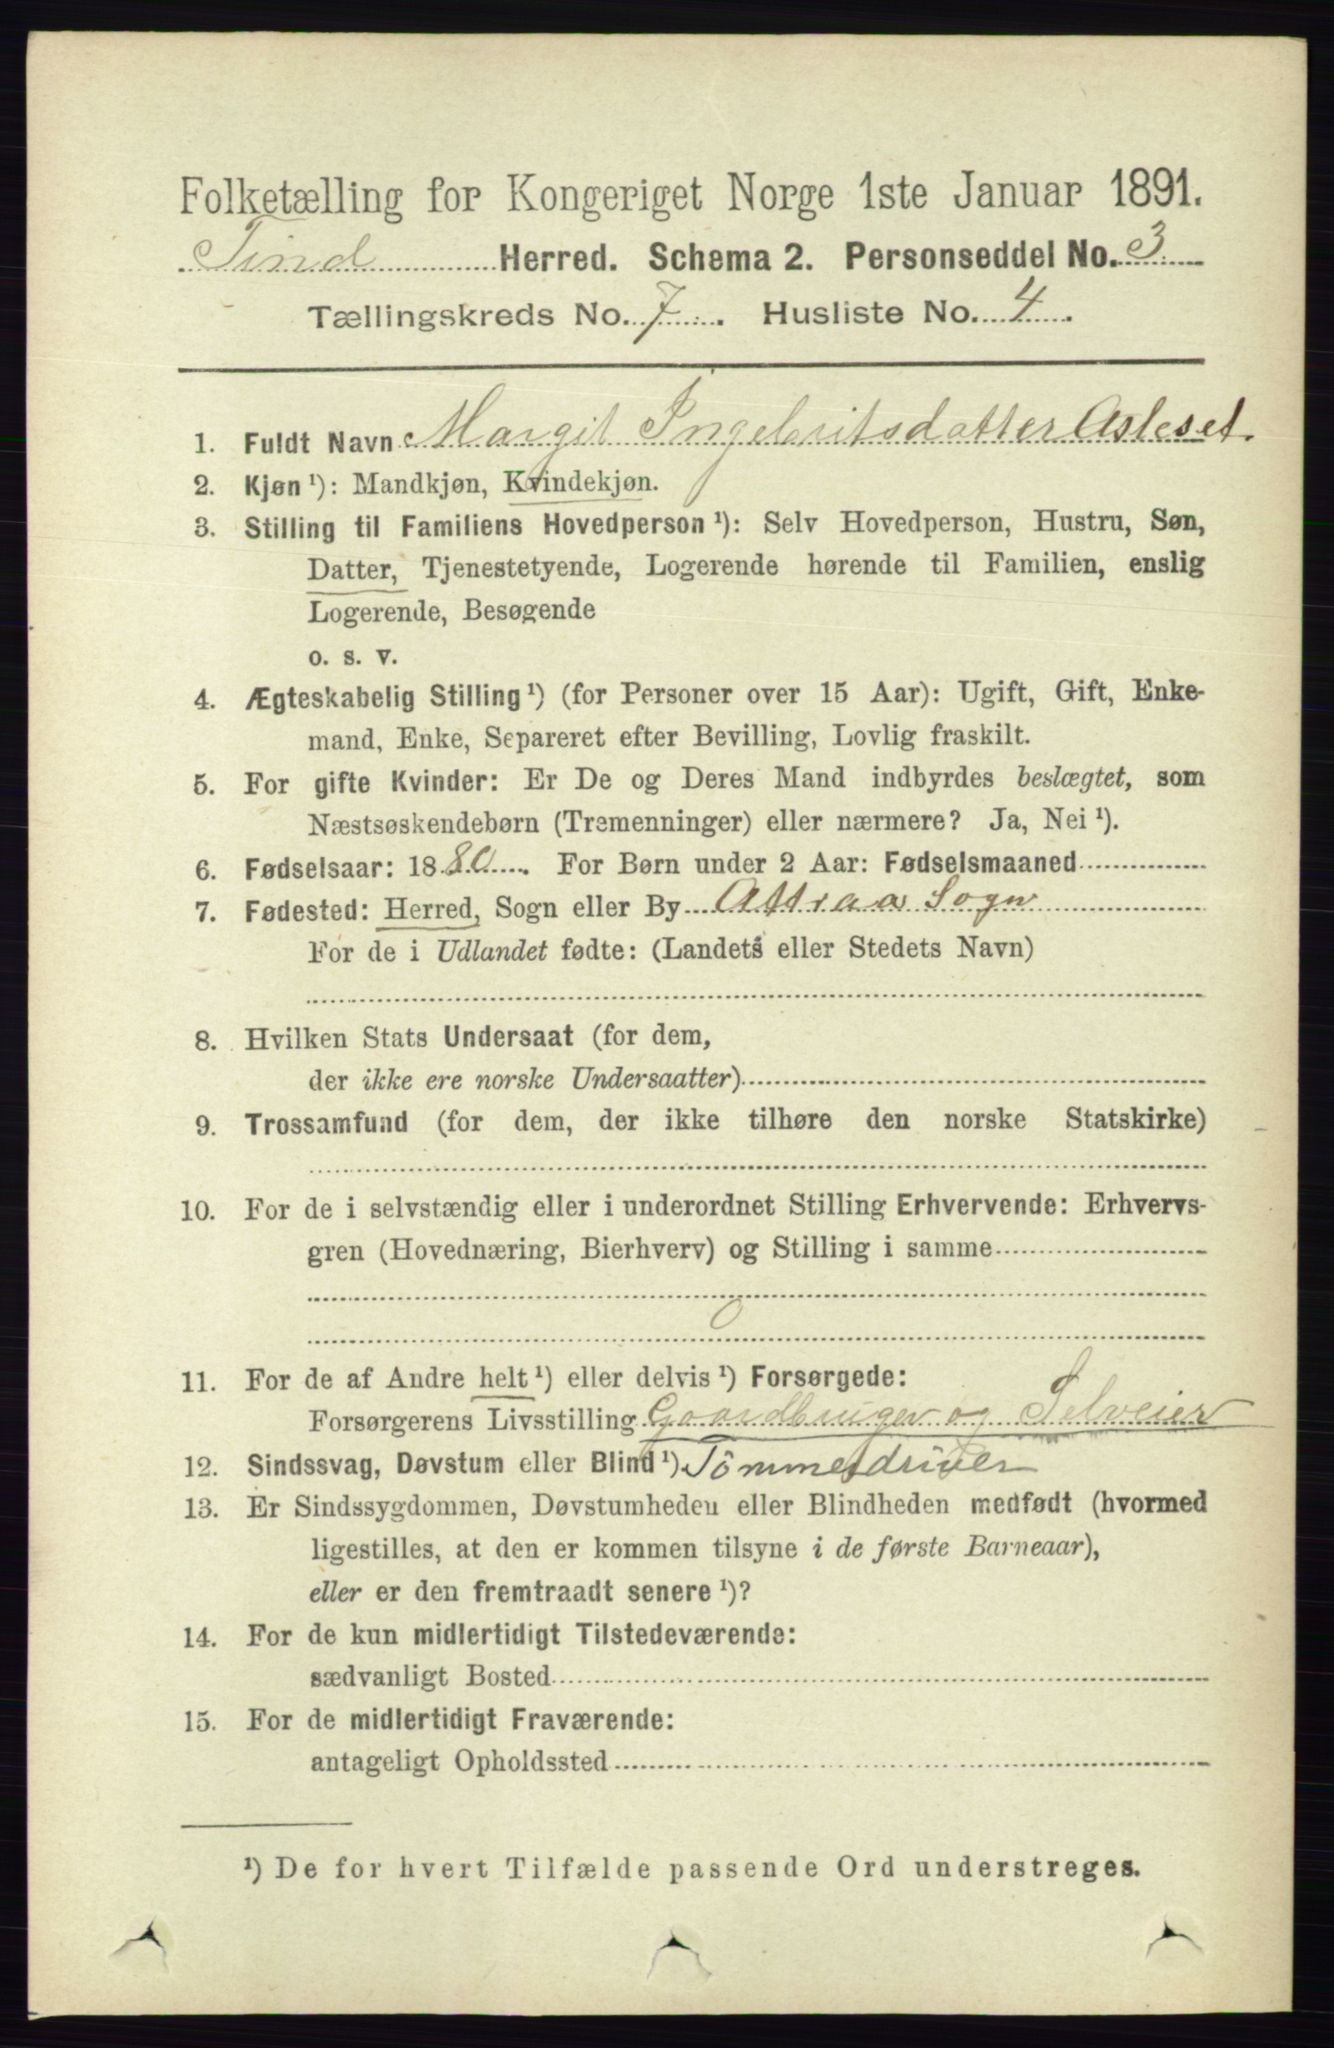 Folketælling for Kongeriget Norge 1ste Januar 1891.
Tind Herred. Schema 2. Personseddel No. 3
Tællingskreds No. 7. Husliste No. 4.
1. Fuldt Navn Margit Ingebritsdatter Asleset.
2. Kjøn ¹): Mandkjøn, Kvindekjøn.
3. Stilling til Familiens Hovedperson ¹): Selv Hovedperson, Hustru, Søn,
Datter, Tjenestetyende, Logerende hørende til Familien, enslig
Logerende, Besøgende
o. s. v.
4. Ægteskabelig Stilling ¹) (for Personer over 15 Aar): Ugift, Gift, Enke-
mand, Enke, Separeret efter Bevilling, Lovlig fraskilt.
5. For gifte Kvinder: Er De og Deres Mand indbyrdes beslægtet, som
Næstsøskendebørn (Tremenninger) eller nærmere? Ja, Nei ¹).
6. Fødselsaar: 1880. For Børn under 2 Aar: Fødselsmaaned
7. Fødested: Herred, Sogn eller By Attraa Sogn
For de i Udlandet fødte: (Landets eller Stedets Navn)
8. Hvilken Stats Undersaat (for dem,
der ikke ere norske Undersaatter)
9. Trossamfund (for dem, der ikke tilhøre den norske Statskirke)
10. For de i selvstændig eller i underordnet Stilling Erhvervende: Erhvervs-
gren (Hovednæring, Bierhverv) og Stilling i samme
0
11. For de af Andre helt ¹) eller delvis ¹) Forsørgede:
Forsørgerens Livsstilling Gaardbruger og Selveier
12. Sindssvag, Døvstum eller Blind ¹) Tömmerdriver
13. Er Sindssygdommen, Døvstumheden eller Blindheden medfødt (hvormed
ligestilles, at den er kommen tilsyne i de første Barneaar),
eller er den fremtraadt senere ¹)?
14. For de kun midlertidigt Tilstedeværende:
sædvanligt Bosted
15. For de midlertidigt Fraværende:
antageligt Opholdssted
¹) De for hvert Tilfælde passende Ord understreges.